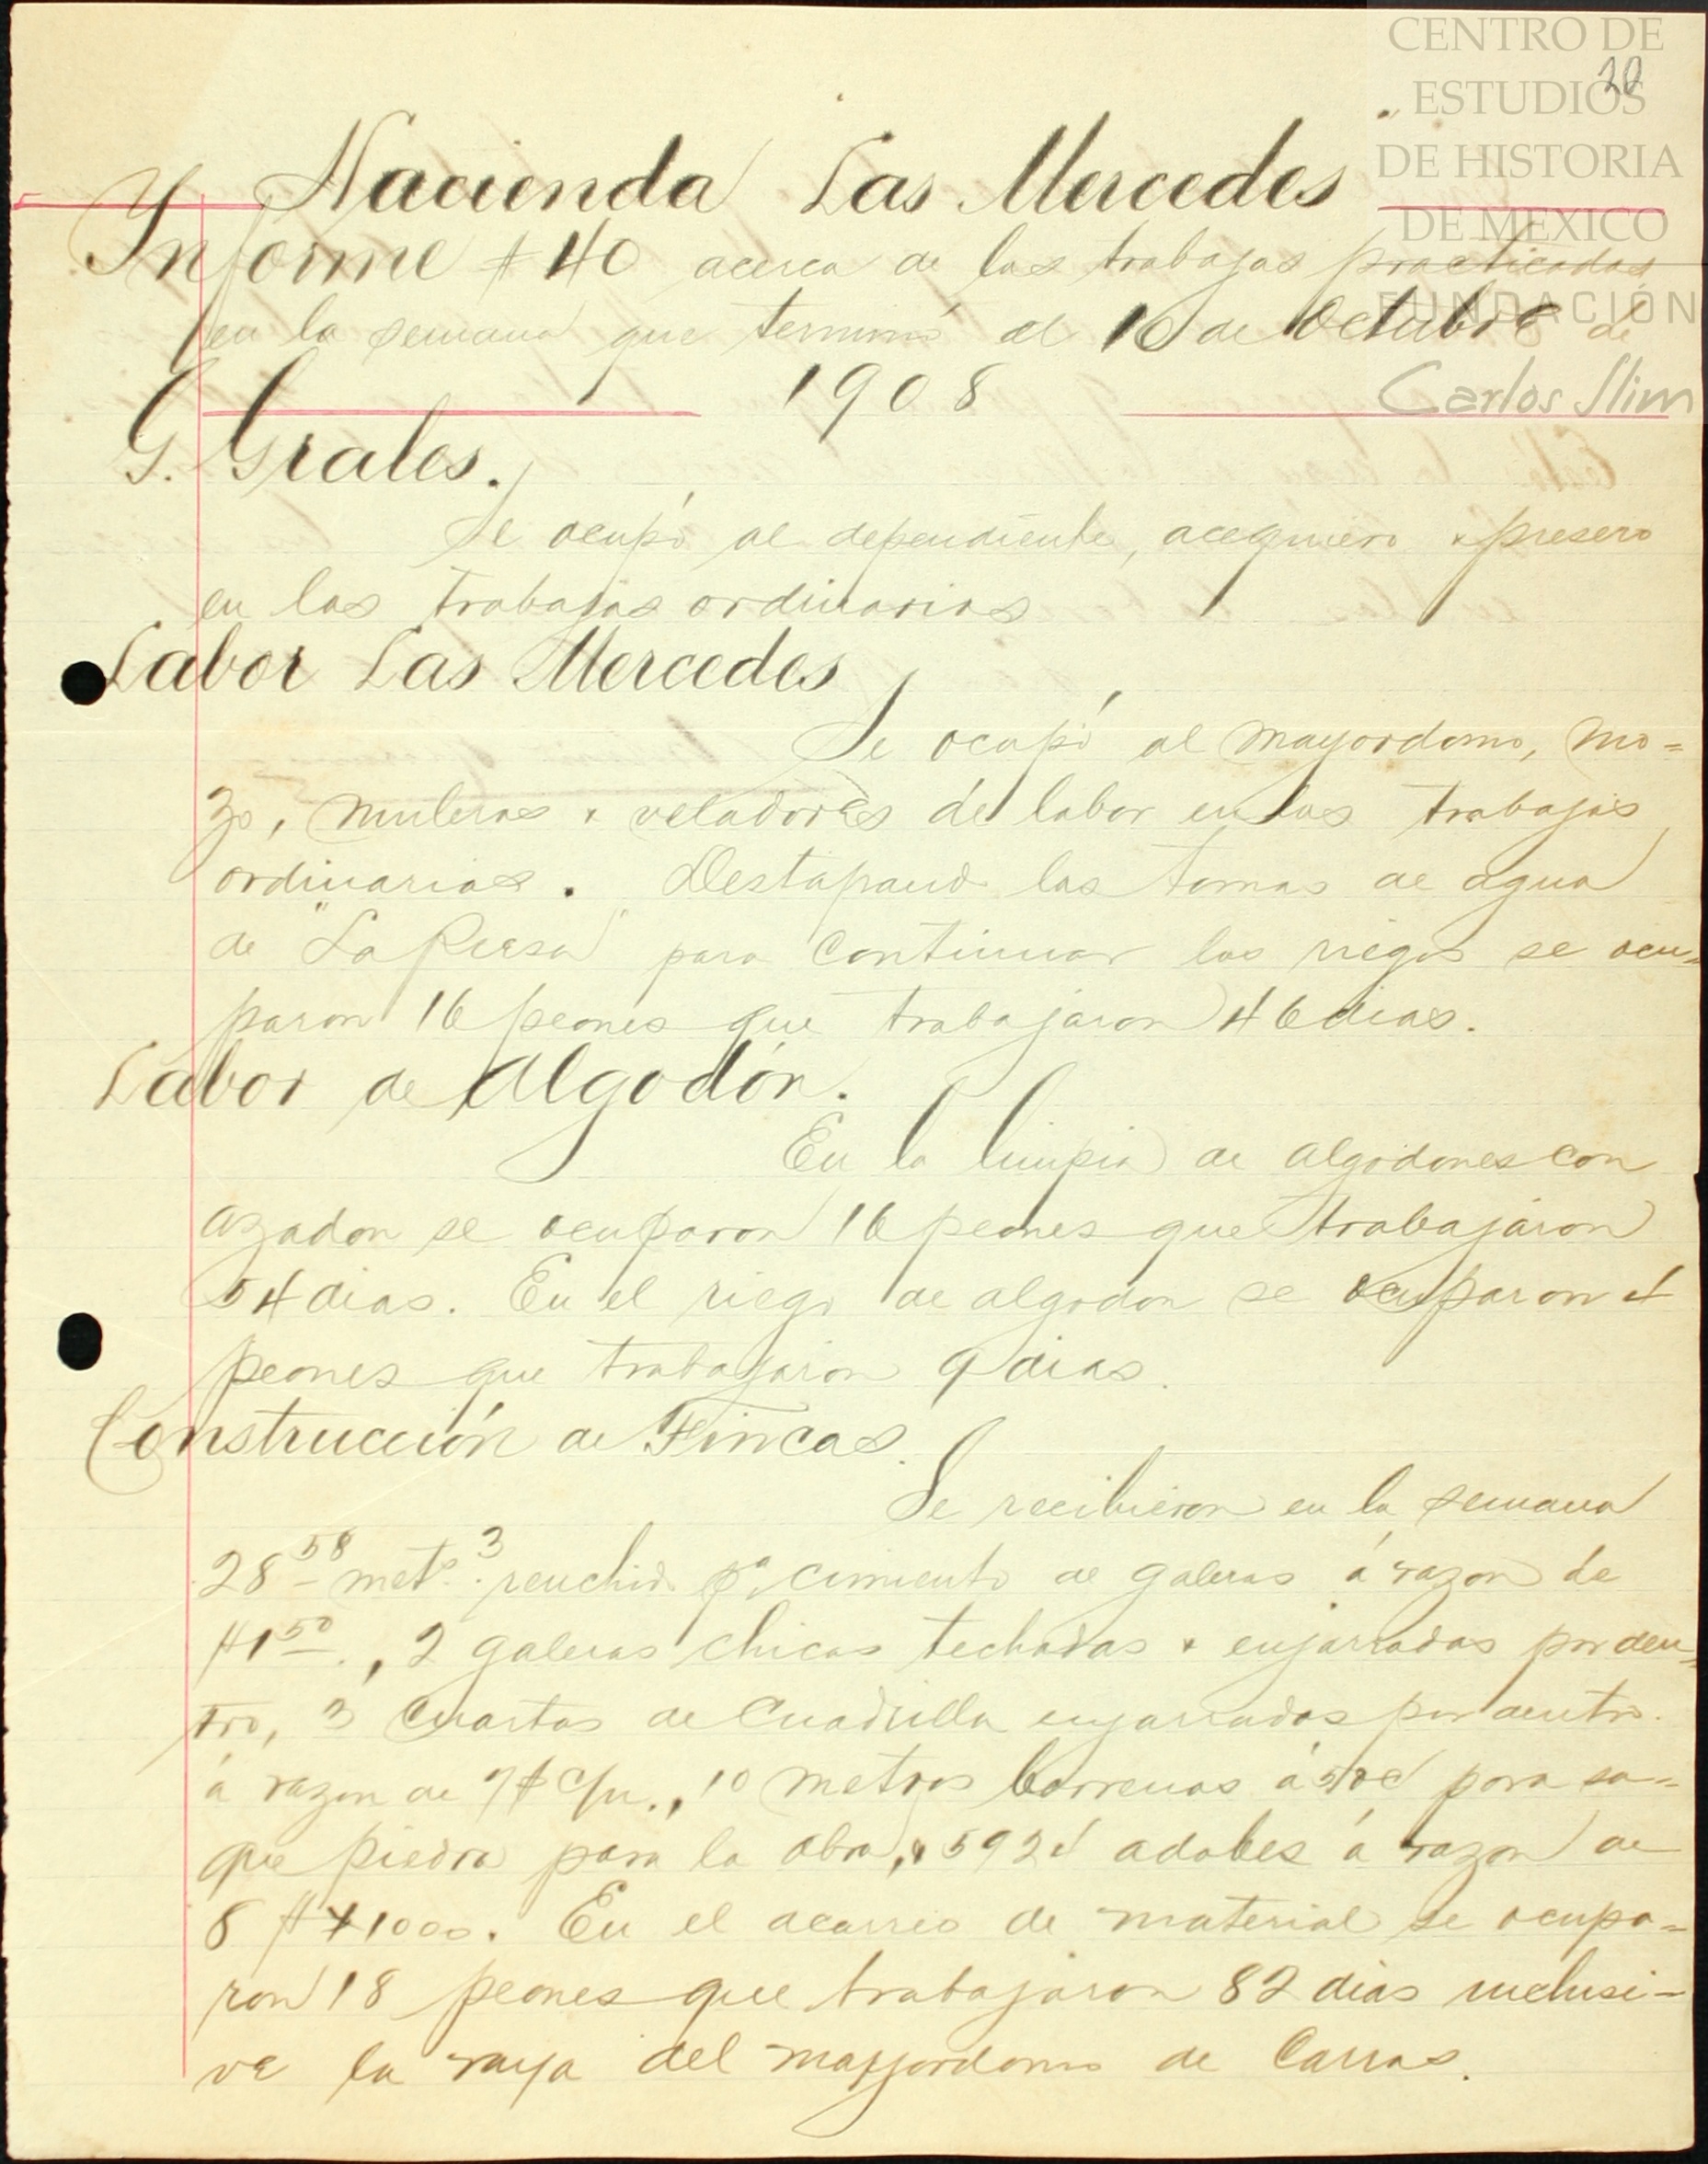 CENTRO DE
ESTUDIOS
DE HISTORIA
DE MEXICO
FUNDACIÓN
Carlos Slim
20
Hacienda Las Mercedes
Informe # 40 acerca de los trabajos practicados
en la semana que terminó el 10 de Octubre de
1908
G. Grales.
Se ocupó al dependiente, acequiero y presero
en los trabajos ordinarios
Labor Las Mercedes
Se ocupó al mayordomo, mo=
zo, muleros y veladores de labor en los trabajos
ordinarios. Destapando las tomas de agua
de "La Presa" para continuar los riegos se ocu=
paron 16 peones que trabajaron 46 dias.
Labor de Algodón.
En la limpia de algodones con
azadon se ocuparon 16 peones que trabajaron
54 dias. En el riego de algodon se ocuparon 4
peones que trabajaron 9 dias.
Construcción de Fincas.
Se recibieron en la semana
28 58 mets. 3 renchido pa. cimiento de galeras á razon de
$1 50., 2 galeras chicas techadas y enjarradas por den=
tro, 3 cuartos de Cuadrilla enjarrados por dentro.
á razon de 7$ c/u., 10 metros barrenos á 50¢ para sa=
que piedra para la obra, y 5924 adobes á razon de
8 $ 1000. En el acarreo de material se ocupa=
ron 18 peones que trabajaron 82 dias inclusi=
ve la raya del mayordomo de Carros.